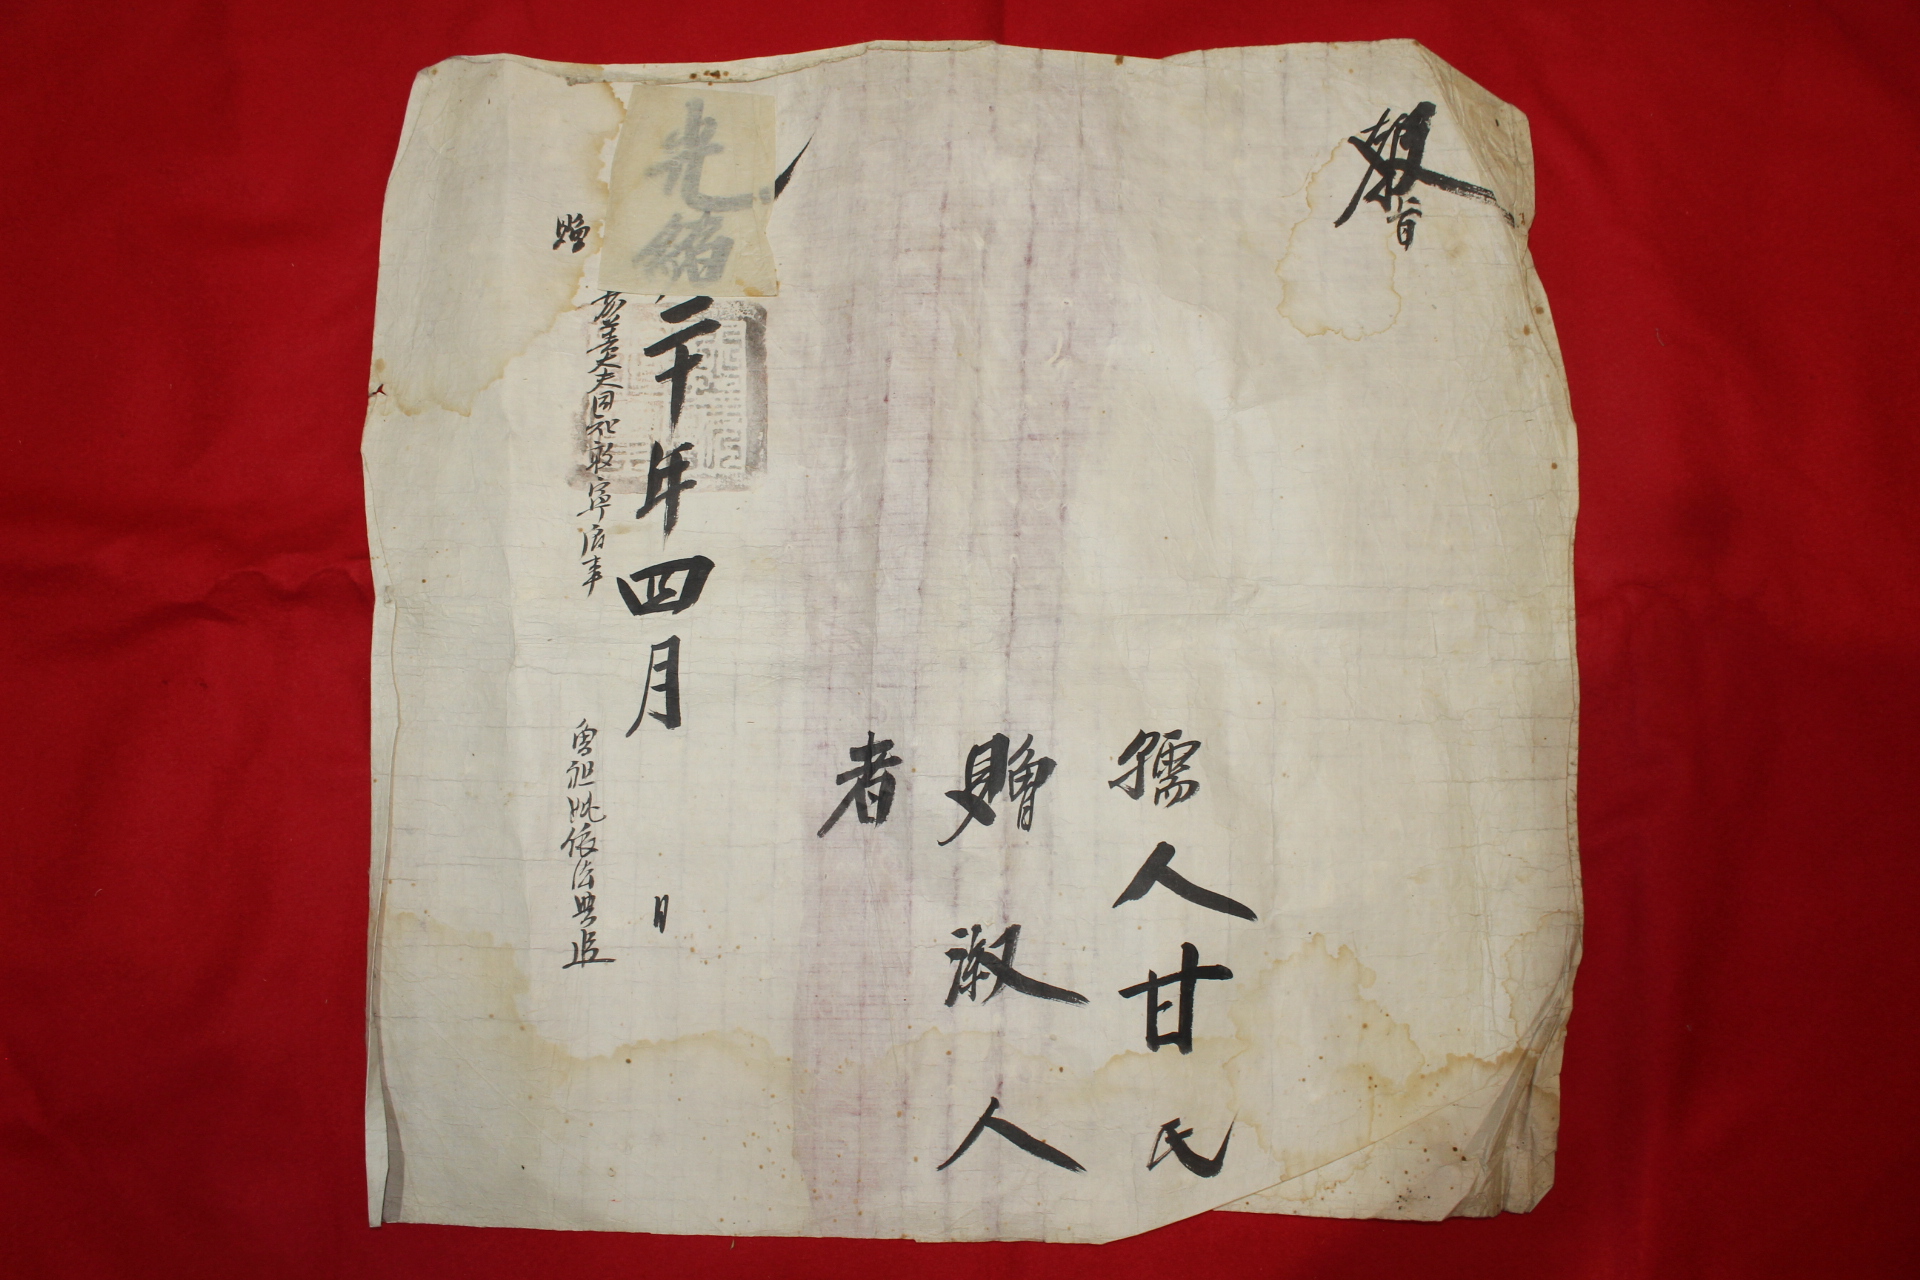 敎旨
孺人甘氏
贈淑人
者
光緖
二十年四月 日
贈
嘉善大夫同知敦寧府事
曾祖妣依法典追